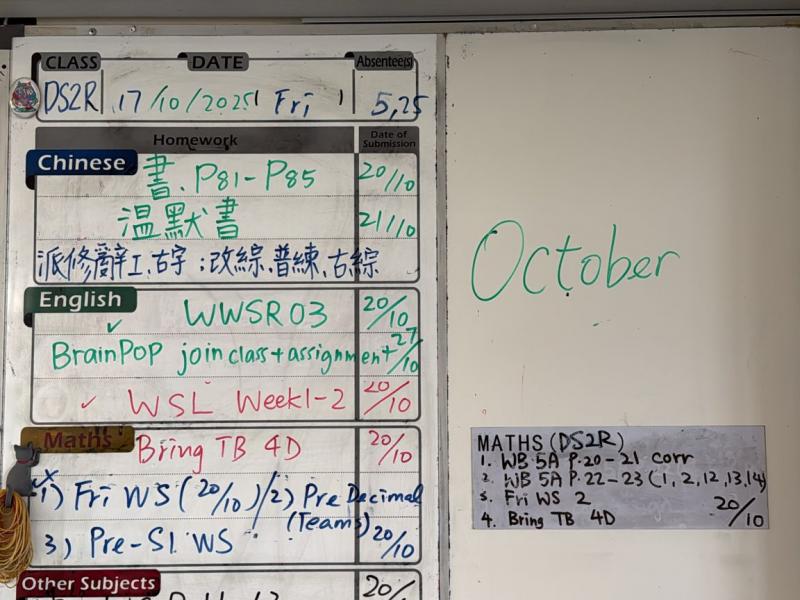 CLASS DATE Absentee(s)
DS2R 17/10/2025 ( Fri ) 5,25
Homework Date of Submission
Chinese 書.P81-P85 20/10
溫默書 21/10
派修辭工.古字;改綜.普練.古綜
English
WWSR03 20/10
BrainPOP join class + assignment 27/10
WSL Week1-2 20/10
Maths Bring TB 4D 20/10
1) Fri WS (20/10) / 2) Pre Decimal
(Teams)
3) Pre-S1 WS 20/10
Other Subjects
20/
October
MATHS (DS2R)
1. WB 5A P.20-21 corr
2. WB 5A P.22-23 (1, 2, 12, 13, 14)
3. Fri WS 2
4. Bring TB 4D 20/10